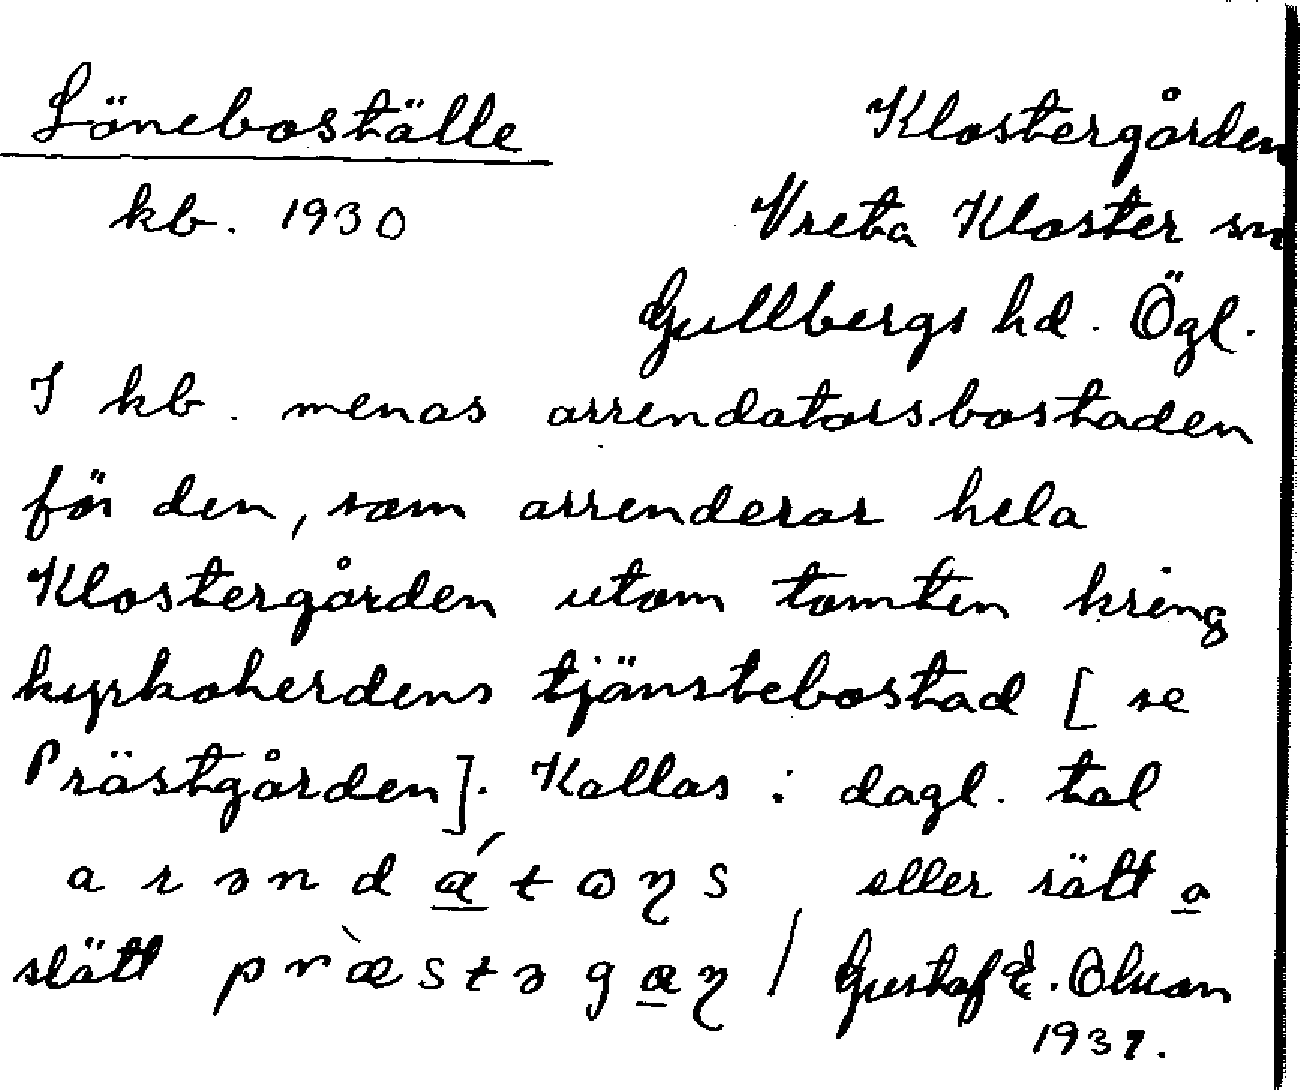 Löneboställe Klostergården
kb. 1930 Vreta Kloster sn
Gullbergs hd. Ögl.
I kb. menas arrendatorsbostaden
för den, som arrenderar hela
Klostergården utom tomten kring
kyrkoherdens tjänstebostad [se
Prästgården]. Kallas i dagl. tal
eller rätt o
slätt / Gustaf E. Olson
1937.